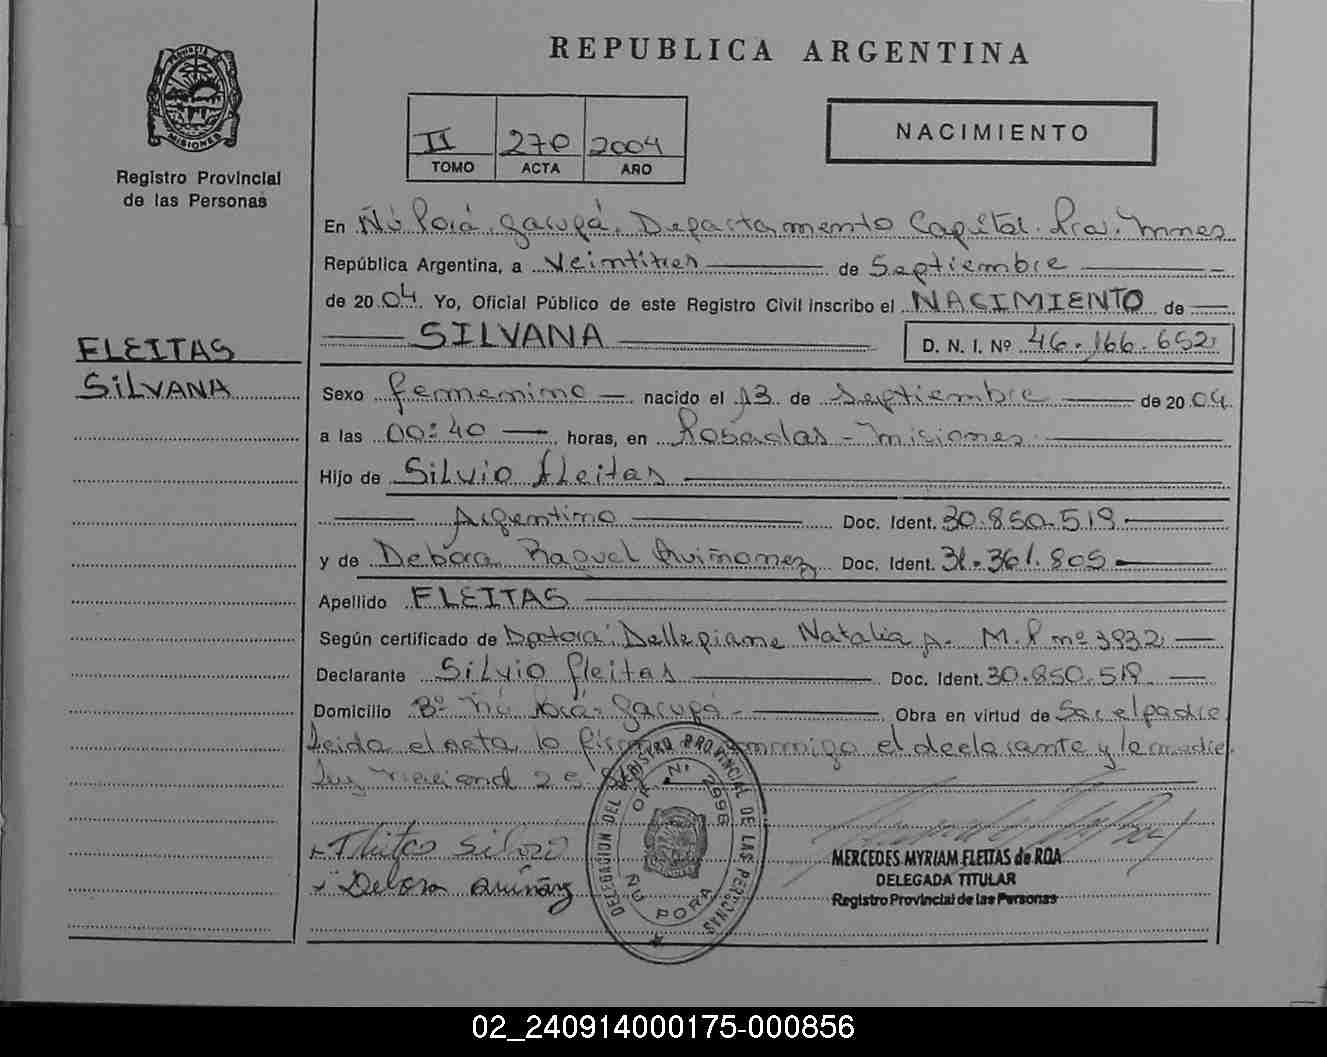 REPUBLICA ARGENTINA
PROVINCIA DE MISIONES
Registro Provincial
de las Personas
II 270 2004
TOMO ACTA AÑO
NACIMIENTO
En Ñú Porá, Garupá, Departamento Capital. Pcia. Mnes
República Argentina, a Veintitres de Septiembre
de 2004. Yo, Oficial Público de este Registro Civil inscribo el NACIMIENTO de
SILVANA D. N. I. Nº 46.166.652
FLEITAS
SILVANA
Sexo femenino nacido el 13 de Septiembre de 2004
a las 00:40 horas, en Posadas - Misiones
Hijo de Silvio Fleitas
Argentino Doc. Ident. 30.850.519
y de Debora Raquel Quiñonez Doc. Ident. 31.361.805
Apellido FLEITAS
Según certificado de Doctora: Dellepiane Natalia A. M.P nº 3932
Declarante Silvio Fleitas Doc. Ident. 30.850.519
Domicilio Bº Ñú Porá - Garupá - Obra en virtud de Ser el padre
Leida el acta, la conmigo el declarante y la madre.
DELEGACION DEL REGISTRO PROVINCIAL DE LAS PERSONAS
Nº 2998
ÑU PORA
Fleitas Silvio
Debora Quiñonez
MERCEDES MYRIAM FLEITAS de ROA
DELEGADA TITULAR
Registro Provincial de las Personas
02_240914000175-000856